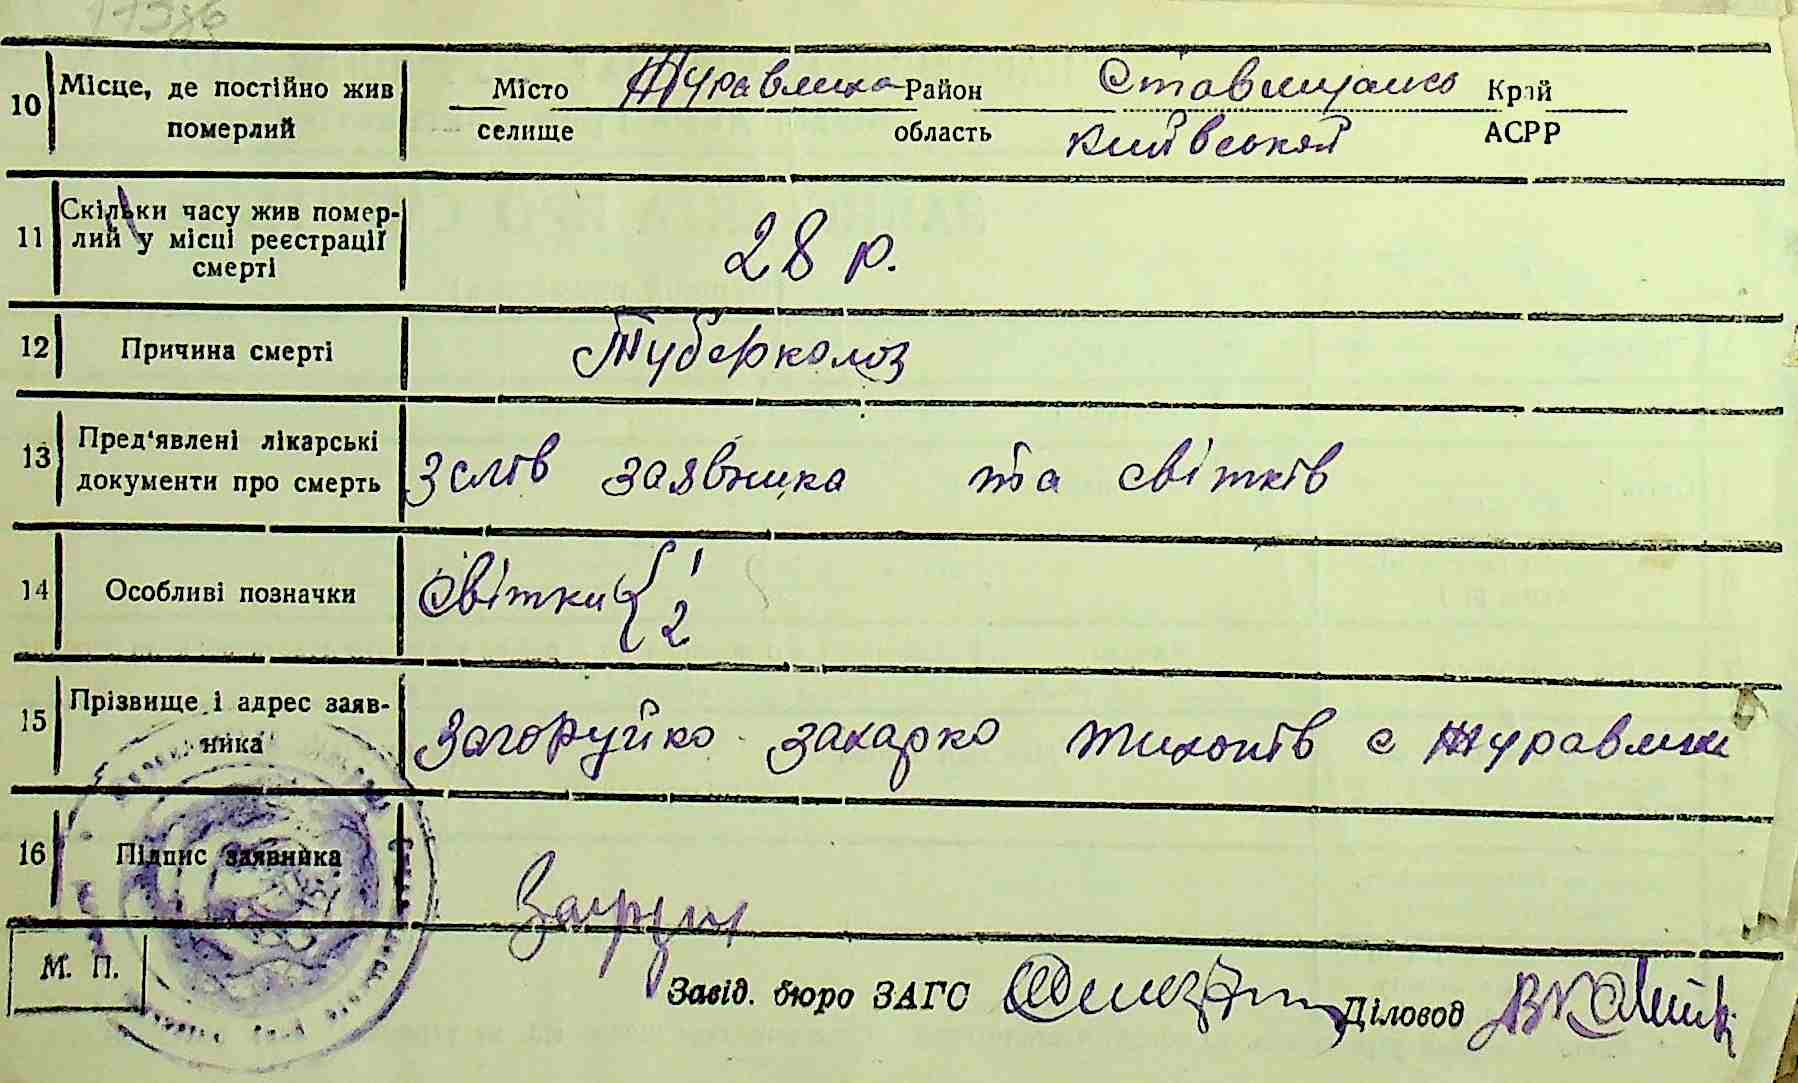 10 Місце, де постійно жив померлий Місто селище Журавлиха Район область Ставищансь Київської Край АСРР
11 Скільки часу жив помер-
лий у місці реєстрації
смерті
28 р.
12 Причина смерті Туберколоз
13 Пред'явлені лікарські
документи про смерть
З слів заявника та світків
14 Особливі позначки Світки { 1
2
15 Прізвище і адрес заяв-
ника
Загоруйко Захарко Тихонів с Журавлихи
16 Підпис заявника
М. П.
Завід. бюро ЗАГС Діловод